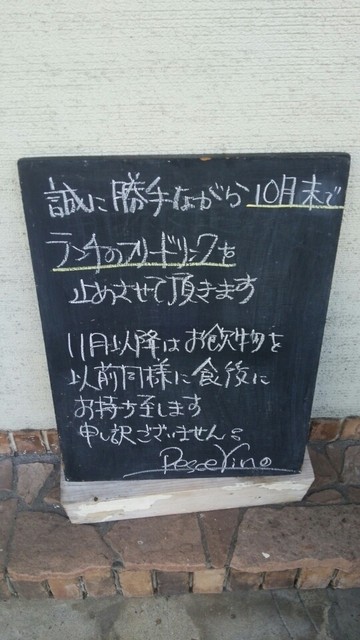 誠に勝手ながら10月末で
ランチのフリードリンクを
止めさせて頂きます
11月以降はお飲物を
以前同様に食後に
お持ち至します
申し訳ございません。
Pesce Vino